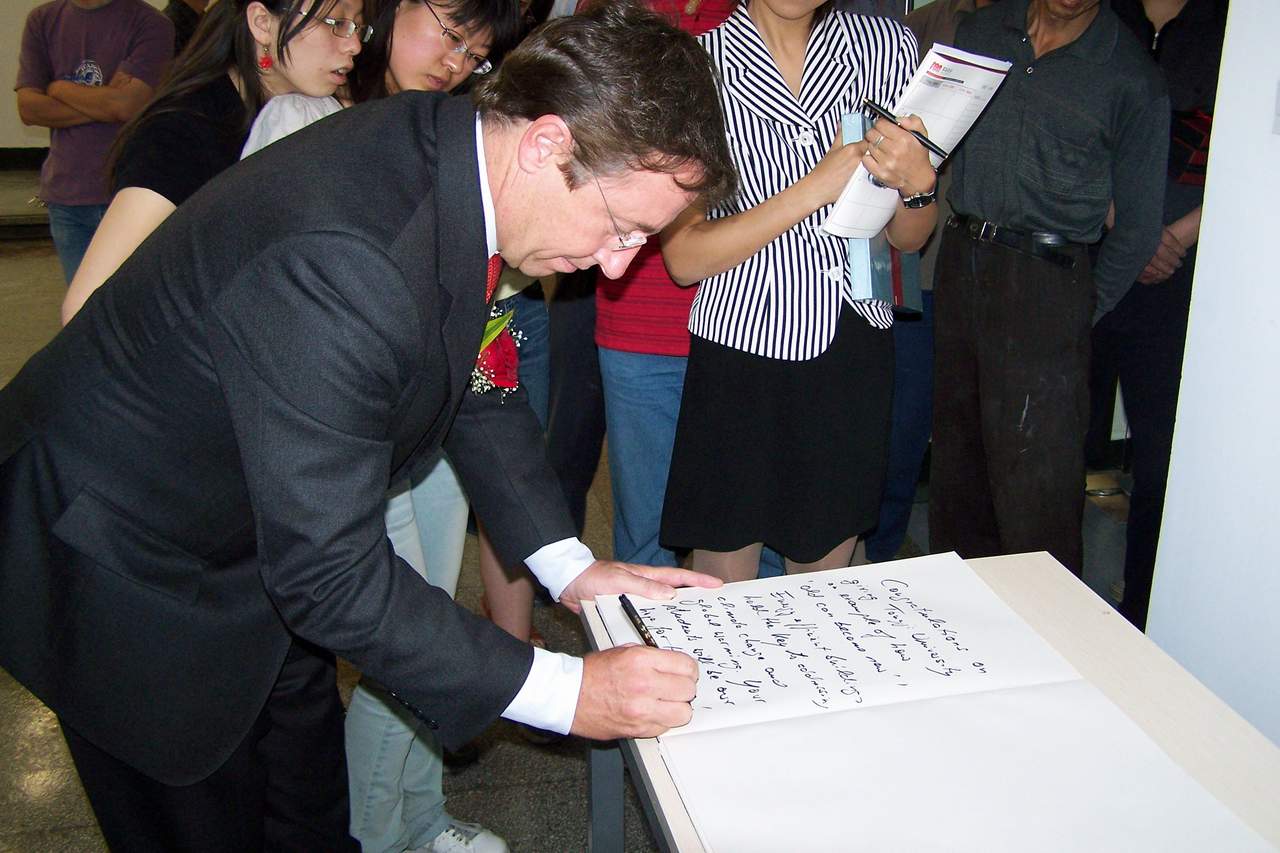 Congratulations on
Tongji University
giving
example of how
'old can become new'.
Energy efficient buildings
hold the key to addressing
climate change and
global warming. Your
students will be our
hope for